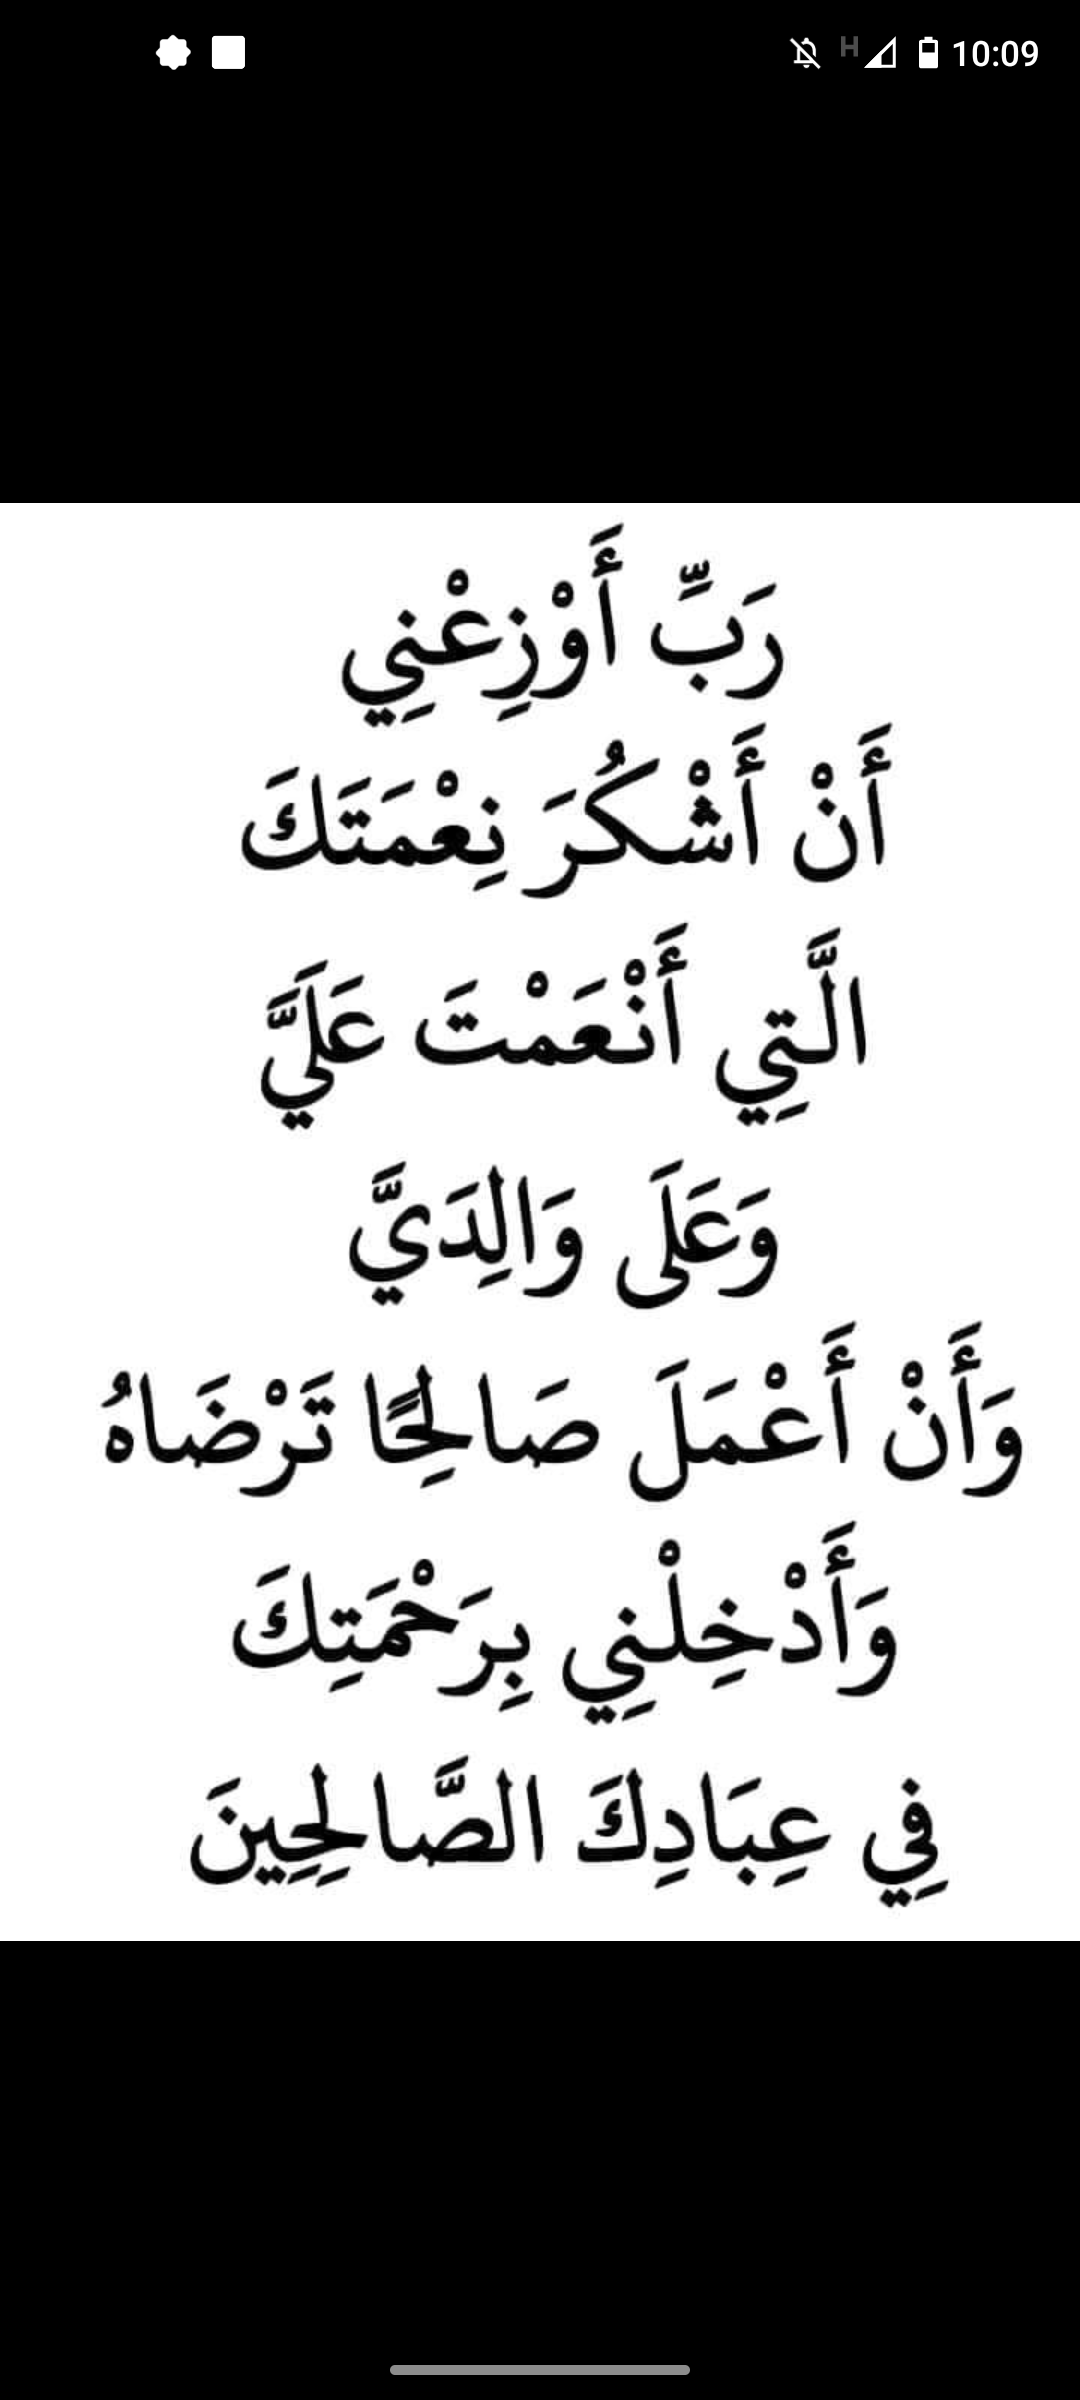 H 10:09
رَبِّ أَوْزِعْنِي
أَنْ أَشْكُرَ نِعْمَتَكَ
الَّتِي أَنْعَمْتَ عَلَيَّ
وَعَلَى وَالِدَيَّ
وَأَنْ أَعْمَلَ صَالِحًا تَرْضَاهُ
وَأَدْخِلْنِي بِرَحْمَتِكَ
فِي عِبَادِكَ الصَّالِحِينَ